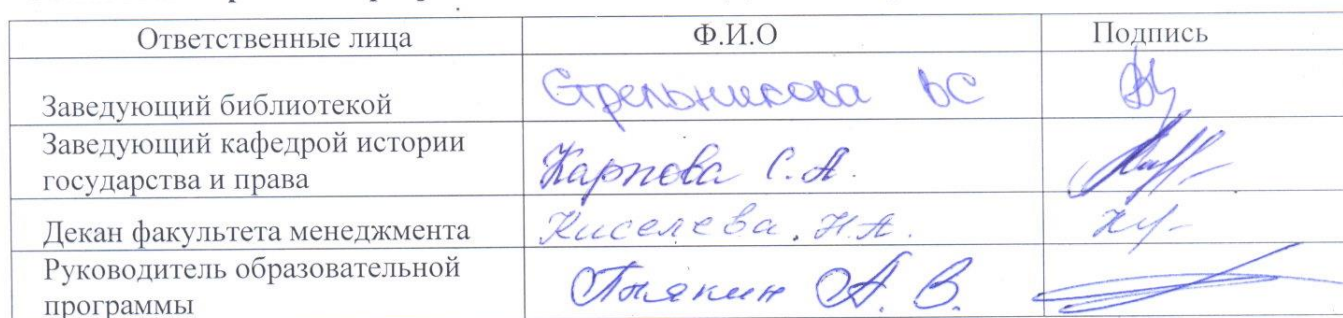 Ответственные лица Ф.И.О Подпись
Заведующий библиотекой Стрельникова ВС
Заведующий кафедрой истории
государства и права Карпова С.А.
Декан факультета менеджмента Киселева Н.А.
Руководитель образовательной
программы А.В.